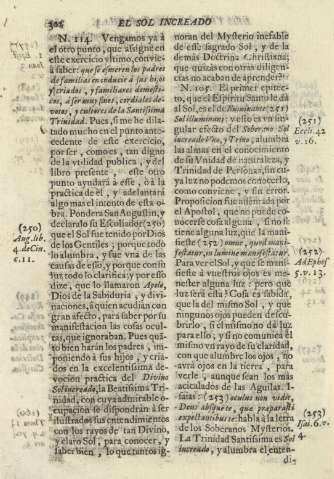 302 EL SOL INCREADO
N. 114. Vengamos yà a
el otro punto, que asigné en
este exercicio ultimo, convie-
ne à saber: que se esmeren los padres
de familias en inducir à sus hijos
y criados, y familiares domesti-
cos, à ser muy finos, cordiales de-
votos, y cultores de la Santissima
Trinidad. Pues, si me he dila-
tado mucho en el punto ante-
cedente de este exercicio,
por ser, comores, tan digno
de la utilidad publica, y del
libro presente, este otro
punto ayudará a este, ò à la
practica de èl, y adelantará
algo mas el intento de esta o-
bra. Pondera San Augustin, y
declaralo su Escoliador (250)
que el Sol fue tenido por Dios
de los Gentiles; porque todo
lo alumbra, y fue una de las
causas de esso, y porque con su
luz todo lo clarifica y por esso
dize, que lo llamaron Apolo,
Dios de la Sabiduria, y divi-
naciones, à quien acudian con
gran afecto, para saber por su
manifestacion las cosas ocul-
tas, que ignoraban. Pues quâ-
to bien harán los padres, im-
poniendo à sus hijos, y cria-
dos en la excelentissima de-
vocion practica del Divino
Sol increado, la Beatissima Tri-
nidad, con cuya admirable o-
cupacion se dispondràn à ser
ilustrados sus entendimientos
con los rayos de tan Divino,
y claro Sol, para conocer, y
saber bien, lo que tantos ig-
(250)
Aug. lib.
4. de Civ.
c. 11.
noran del Mysterio inefable
de este sagrado Sol, y de la
demàs Doctrina Christiana;
que quizàs con otras diligen-
cias no acaban de aprender?
N. 105. El primer epicte-
to, que el Espiritu Santo le dà
al Sol, es el de Iluminante (251)
Sol illuminans; y esso es un sin-
gular efecto del Soberano Sol
increado Vno, y Trino, alumbra
las almas en el conocimiento
de su Vnidad de naturaleza, y
Trinidad de Personas, sin cu-
ya luz no podemos conocerlo,
como conviene, y sin error.
Proposicion fue assentada por
el Apostol, que no puede co-
nocerse cosa alguna, si no le
tiene alguna luz, que la mani-
fieste (252) omne, quod mani-
festatur, in lumine manifestatur.
Para ver el Sol, que se mani-
fieste à vuestros ojos es me-
nester alguna luz: pero què
luz serà esta? Cosa es sabida,
que la del mismo Sol, y que
ningunos ojos pueden descu-
brirlo, si èl mismo no dà luz
para ello, y si no comunica èl
mismo un rayo de su claridad,
con que alumbre los ojos, no
avrà ojos en la tierra, para
verle, aunque sean los mas
acicalados de las Aguilas. I-
saias: (253) oculus non vidit,
Deus absque te, quae praeparasti
expectantibus te: habla à la letra
de los Soberanos Mysterios.
La Trinidad Santissima es Sol
increado, y alumbra el enten-
di-
(251)
Eccli. 42
v. 16.
(252)
Ad Ephes
5. v. 13.
(253)
Isai. 6. v.
4.